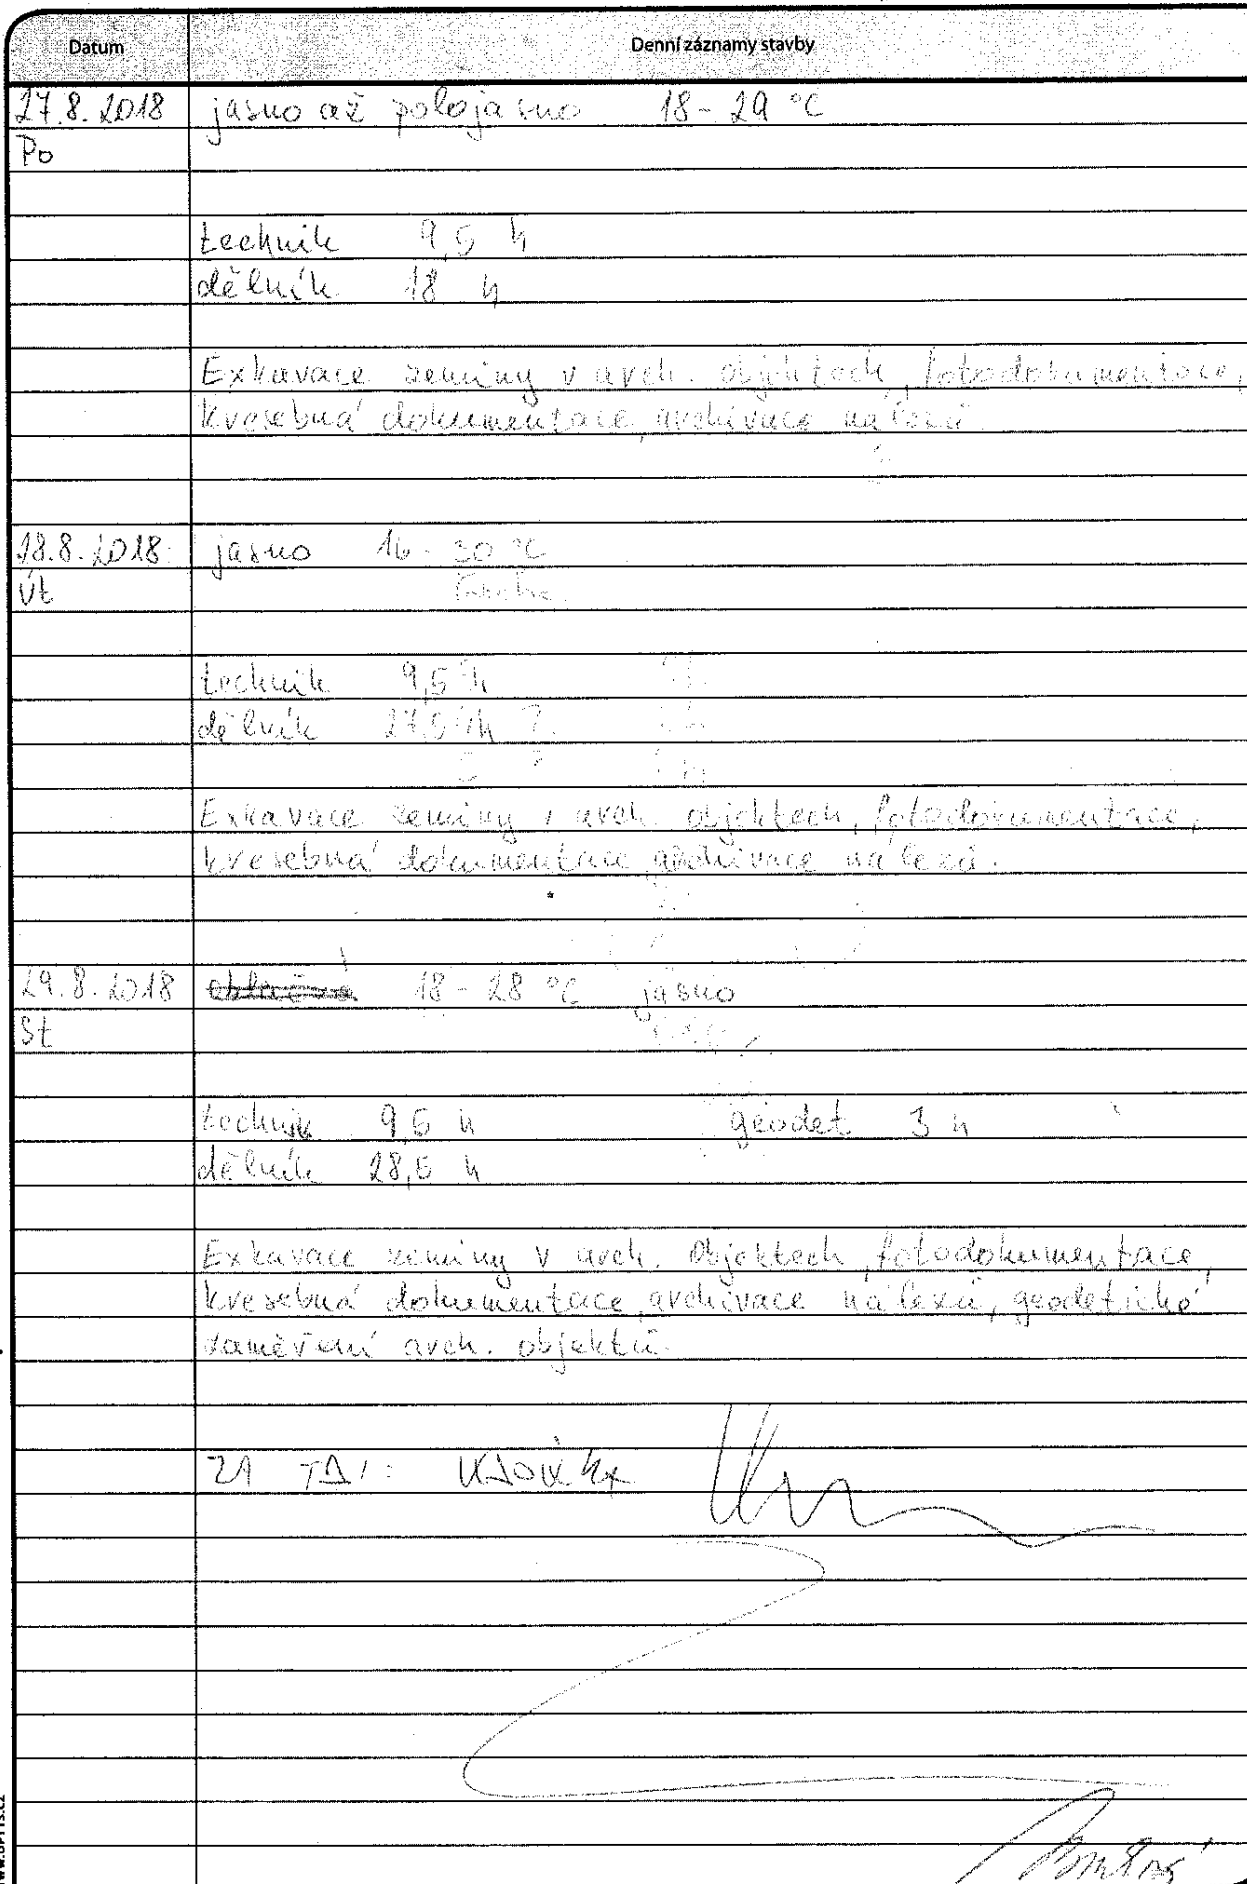 Datum Denní záznamy stavby
27.8.2018 jasno až polojasno 18-29 °C
Po
technik 9,5 h
dělník 18 h
Exkavace zeminy v arch. objektech, fotodokumentace,
kresebná dokumentace, archivace nálezů.
28.8.2018 jasno 16-30 °C
Út
technik 9,5 h
dělník 27,5 h
Exkavace zeminy v arch. objektech, fotodokumentace,
kresebná dokumentace, archivace nálezů.
29.8.2018 18-28 °C jasno
St
technik 9,5 h geodet 3 h
dělník 28,5 h
Exkavace zeminy v arch. objektech, fotodokumentace,
kresebná dokumentace, archivace nálezů, geodetické
zaměření arch. objektů.
ZA TDI: